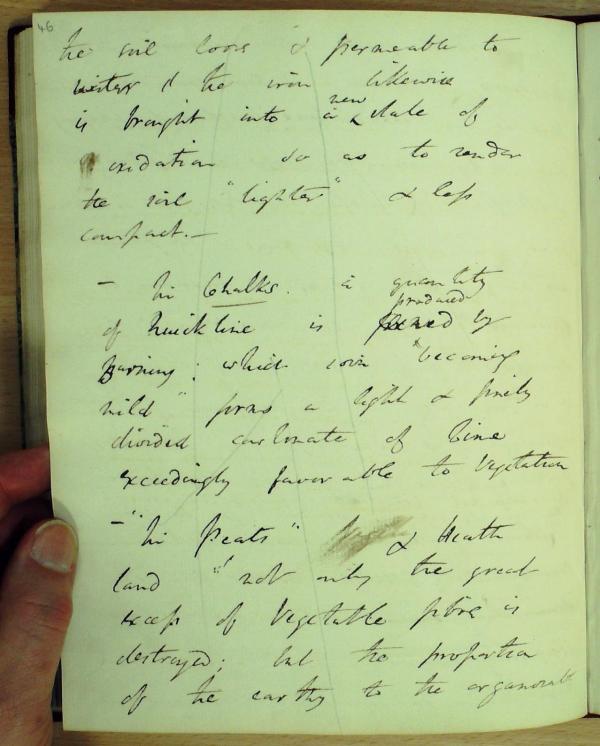 46
the soil loose & permeable to
water & the iron likewise
is brought into a new state of
oxidation so as to render
the soil "lighter" & less
compact.—
— In Chalks. a quantity
of Quicklime is produced by
burning; which soon "becoming
mild" forms a light & finely
divided carbonate of lime
exceedingly favorable to Vegetation
— "In Peats" & Heath
land" not only the great
excess of Vegetable fibre is
destroyed; but the proportion
of the earthy to the